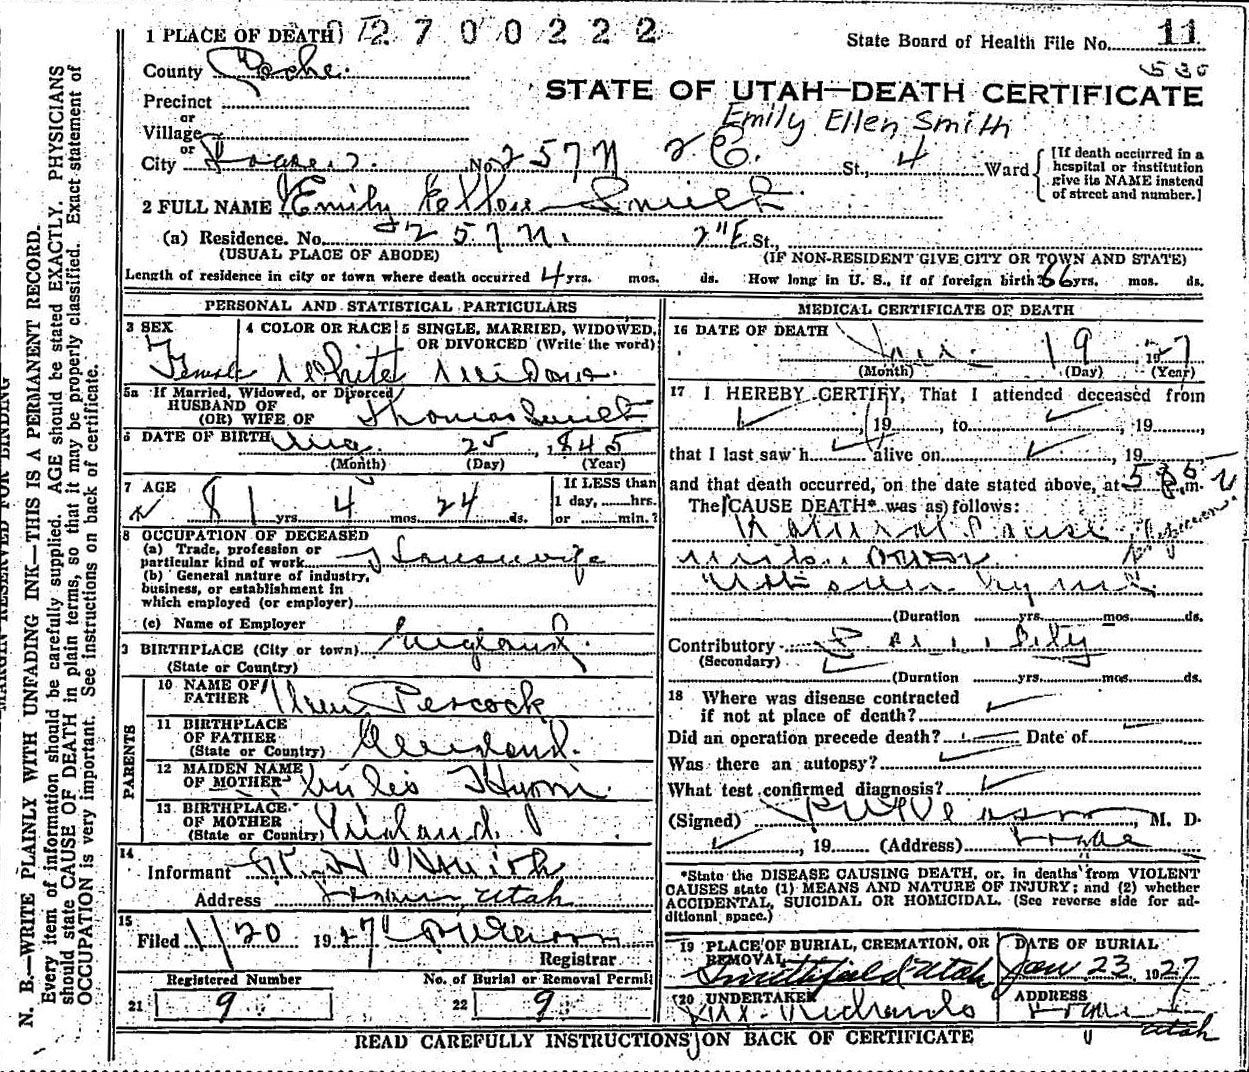 1 PLACE OF DEATH 2700222 State Board of Health File No. 11
County Cache 530
STATE OF UTAH—DEATH CERTIFICATE
Precinct
or
Village
or
Emily Ellen Smith
City Logan No. 257 N 2 E. St., 4 Ward
[If death occurred in a hospital or institution give its NAME instead of street and number.]
2 FULL NAME Emily Ellen Smith
(a) Residence. No. 257 N. 2 E St.,
(USUAL PLACE OF ABODE) (IF NON-RESIDENT GIVE CITY OR TOWN AND STATE)
Length of residence in city or town where death occurred 4 yrs. mos. ds. How long in U. S., if of foreign birth 66 yrs. mos. ds.
PERSONAL AND STATISTICAL PARTICULARS
3 SEX
Female
4 COLOR OR RACE
White
5 SINGLE, MARRIED, WIDOWED, OR DIVORCED (Write the word)
Widow
5a If Married, Widowed, or Divorced
HUSBAND OF
(OR) WIFE OF Thomas Smith
6 DATE OF BIRTH Aug. 25, 1845
(Month) (Day) (Year)
7 AGE
81 yrs. 4 mos. 24 ds.
If LESS than
1 day, hrs.
or min.?
8 OCCUPATION OF DECEASED
(a) Trade, profession or
particular kind of work Housewife
(b) General nature of industry,
business, or establishment in
which employed (or employer)
(c) Name of Employer
9 BIRTHPLACE (City or town) England
(State or Country)
PARENTS
10 NAME OF
FATHER
11 BIRTHPLACE
OF FATHER
(State or Country) England.
12 MAIDEN NAME
OF MOTHER
13 BIRTHPLACE
OF MOTHER
(State or Country) England.
14
Informant
Address Logan, Utah
15
Filed 1/20 1927
Registrar
Registered Number No. of Burial or Removal Permit
21 9 22 9
MEDICAL CERTIFICATE OF DEATH
16 DATE OF DEATH
Jan. 19 1927
(Month) (Day) (Year)
17 I HEREBY CERTIFY, That I attended deceased from
, 19 , to , 19 ,
that I last saw h alive on , 19
and that death occurred, on the date stated above, at 5 m.
The CAUSE DEATH* was as follows:
Natural Cause
(Duration yrs. mos. ds.
Contributory Senility
(Secondary)
(Duration yrs. mos. ds.
18 Where was disease contracted
if not at place of death?
Did an operation precede death? Date of
Was there an autopsy?
What test confirmed diagnosis?
(Signed) , M. D.
, 19 (Address) Logan
*State the DISEASE CAUSING DEATH, or, in deaths from VIOLENT
CAUSES state (1) MEANS AND NATURE OF INJURY; and (2) whether
ACCIDENTAL, SUICIDAL OR HOMICIDAL. (See reverse side for ad-
ditional space.)
19 PLACE OF BURIAL, CREMATION, OR
REMOVAL
Smithfield Utah
DATE OF BURIAL
Jan 23, 1927
20 UNDERTAKER
ADDRESS
Logan
Utah
READ CAREFULLY INSTRUCTIONS ON BACK OF CERTIFICATE
MARGIN RESERVED FOR BINDING
N. B.—WRITE PLAINLY WITH UNFADING INK—THIS IS A PERMANENT RECORD.
Every item of information should be carefully supplied. AGE should be stated EXACTLY. PHYSICIANS
should state CAUSE OF DEATH in plain terms, so that it may be properly classified. Exact statement of
OCCUPATION is very important. See instructions on back of certificate.